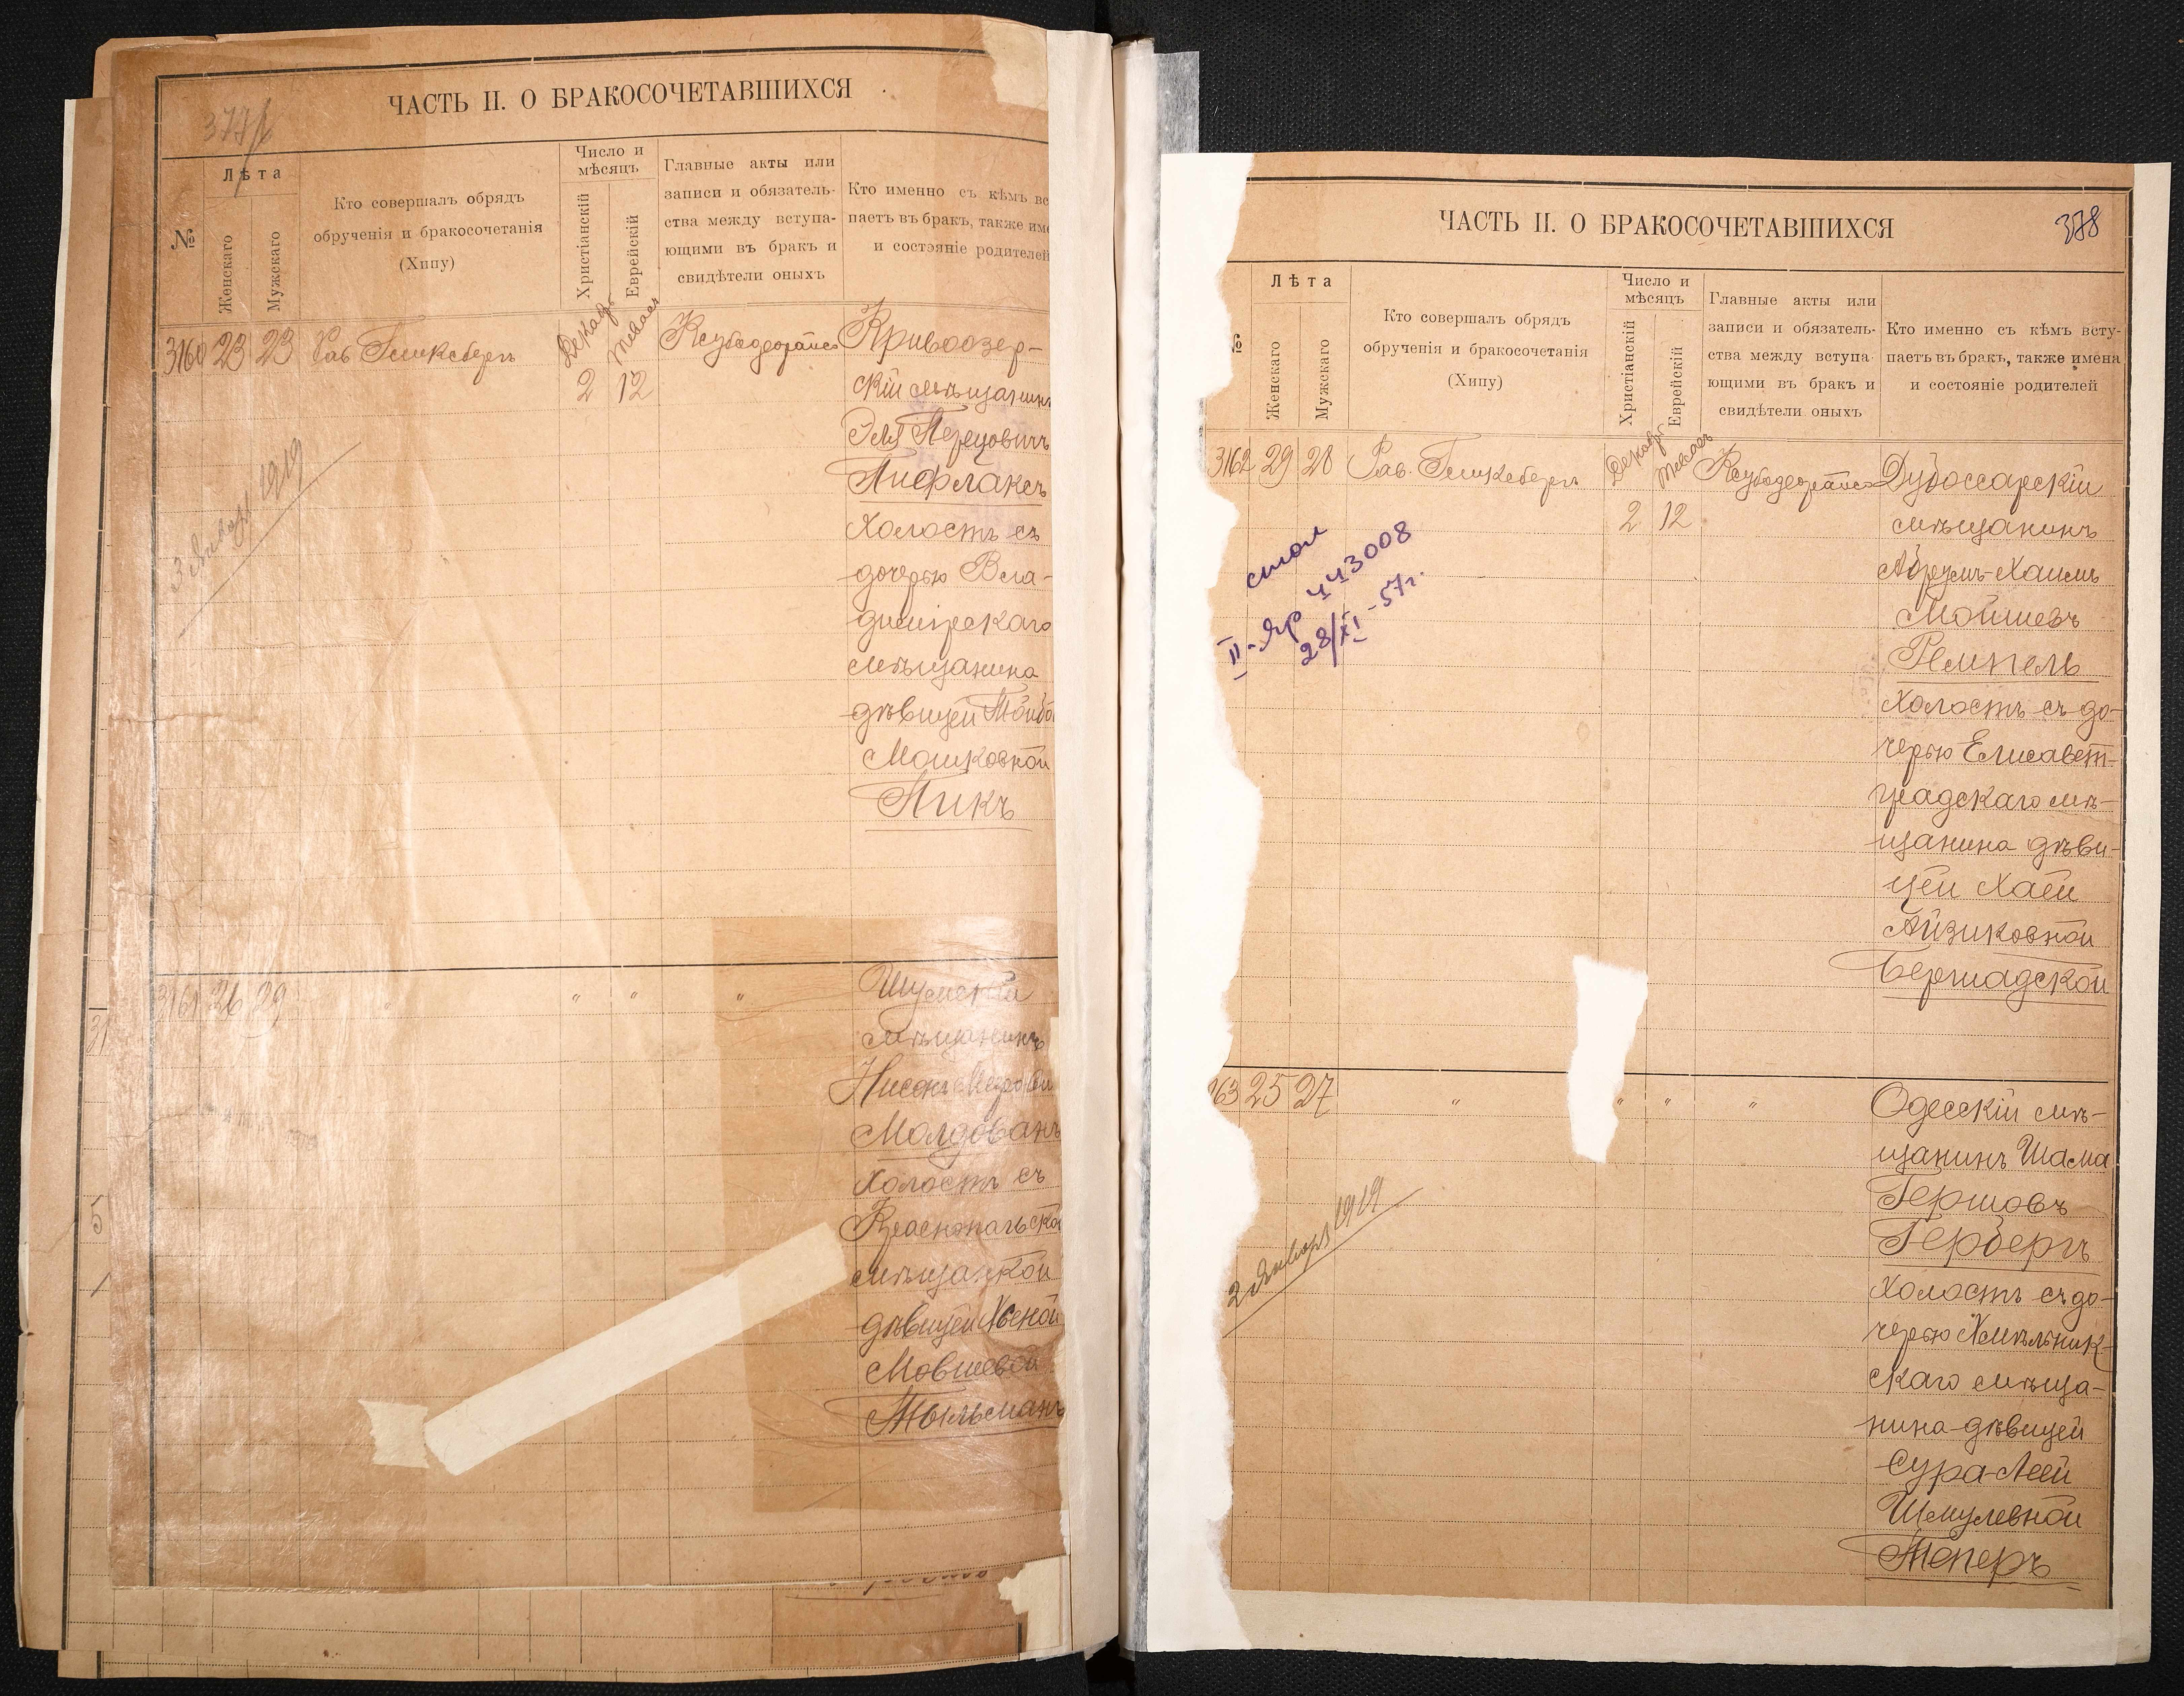 ЧАСТЬ II. О БРАКОСОЧЕТАВШИХСЯ
№
Лѣта
Женскаго
Мужскаго
Кто совершалъ обрядъ
обрученія и бракосочетанія
(Хипу)
Число и
мѣсяцъ
Христіанскій
Еврейскій
Главные акты или
записи и обязатель-
ства между вступа-
ющими въ бракъ и
свидѣтели оныхъ
Кто именно съ кѣмъ вс
паетъ въ бракъ, также име
и состояніе родителей
3160 23 23 Рав. Гинксбергъ
2 12
Кривоозер-
скій мѣщанинъ
Эля Перецовичъ
Пифлаксъ
Холостъ съ
дочерью Вла-
димірскаго
мѣщанина
дѣвицей
Мошковной
Пикъ
3 Января 1919
3161 26 29 " " " "
Шумскій
мѣщанинъ
Нисонъ
Молдованъ
Холостъ съ
мѣщанкой
дѣвицей Хеной
Мовшевой
31
5
ЧАСТЬ II. О БРАКОСОЧЕТАВШИХСЯ
378
№
Лѣта
Женскаго
Мужскаго
Кто совершалъ обрядъ
обрученія и бракосочетанія
(Хипу)
Число и
мѣсяцъ
Христіанскій
Еврейскій
Главные акты или
записи и обязатель-
ства между вступа-
ющими въ бракъ и
свидѣтели оныхъ
Кто именно съ кѣмъ всту-
паетъ въ бракъ, также имена
и состояніе родителей
3162 29 28 Рав. Гинксбергъ
2 12
Дубоссарскій
мѣщанинъ
Абрумъ-Хаимъ
Мойшевъ
Ремпель
Холостъ съ до-
черью Елисавет-
градскаго мѣ-
щанина дѣви-
цей Хаей
Айзиковной
Бершадской
28/XI-57г.
63 25 27 " " " "
Одесскій мѣ-
щанинъ Шама
Гершовъ
Герберъ
Холостъ съ до-
черью Хмѣльник-
скаго мѣща-
нина дѣвицей
Сура-Леей
Шмулевной
Теперъ
2 Января 1919